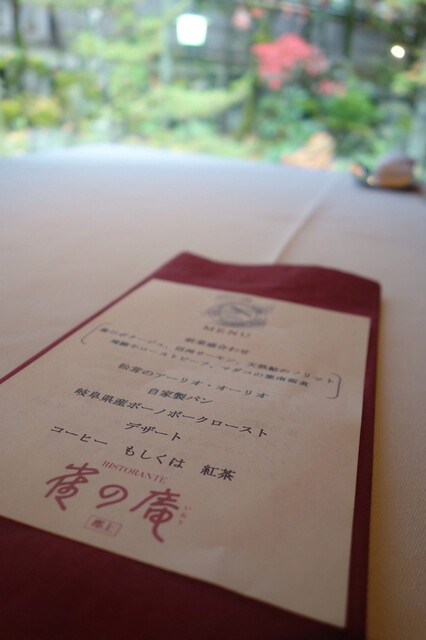 MENU
前菜盛合わせ
松茸のアーリオ・オーリオ
自家製パン
岐阜県産ボーノポークロースト
デザート
コーヒー もしくは 紅茶
RISTORANTE
雀の庵
いおり
郡上